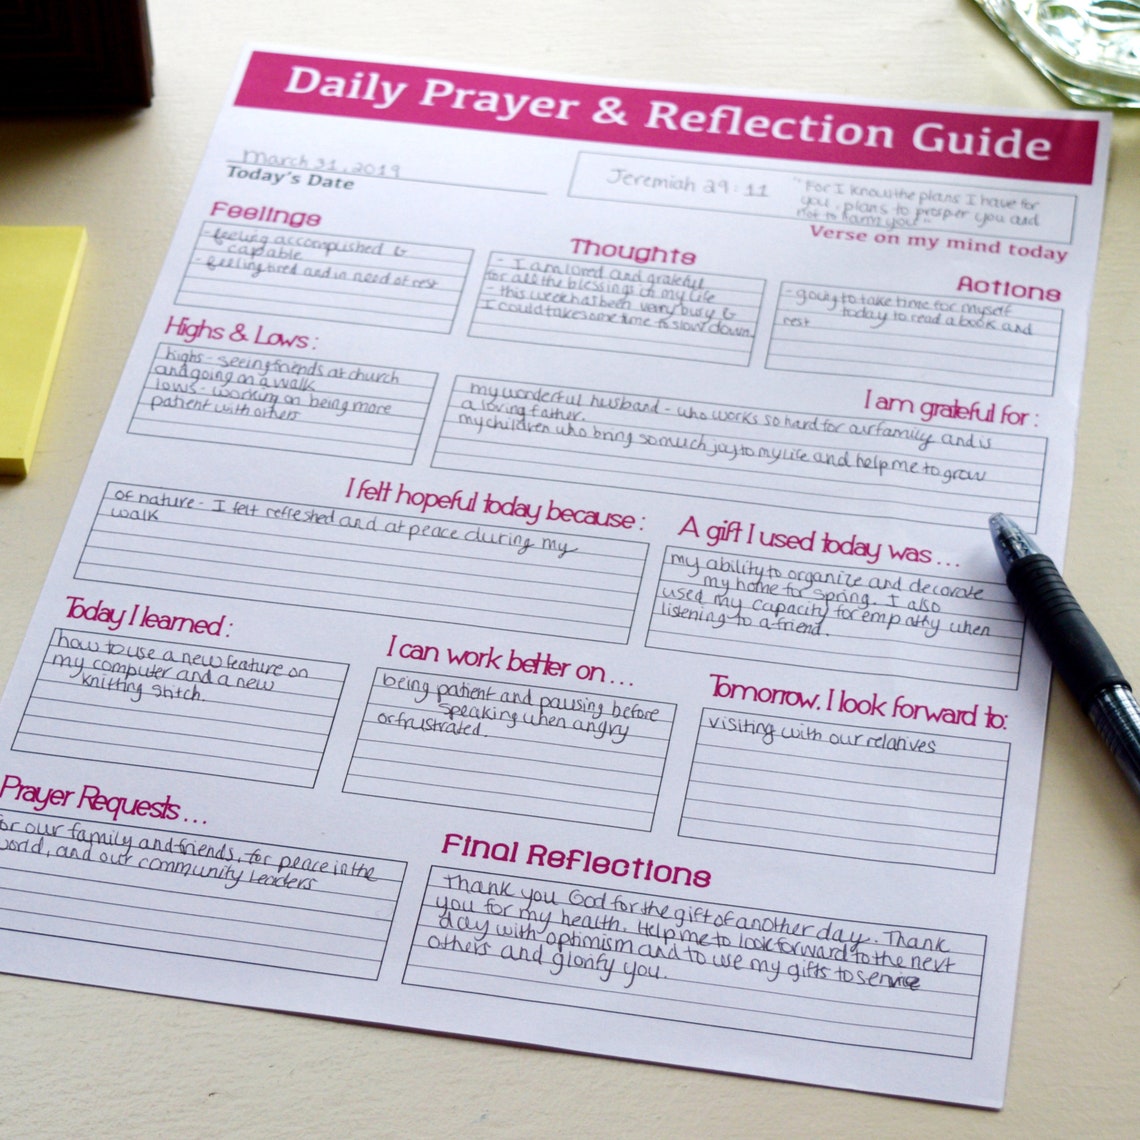 Daily Prayer & Reflection Guide
March 31, 2019
Today's Date
Jeremiah 29:11
"For I know the plans I have for
you, plans to prosper you and
not to harm you"
Verse on my mind today
Feelings
- feeling accomplished &
capable
- feeling tired and in need of rest
Thoughts
- I am loved and grateful
for all the blessings in my life
- this week has been very busy &
I could take some time to slow down
Actions
- going to take time for myself
today to read a book and
rest
Highs & Lows:
highs - seeing friends at church
and going on a walk
lows - working on being more
patient with others
I am grateful for:
my wonderful husband - who works so hard for our family and is
a loving father.
my children who bring so much joy to my life and help me to grow
I felt hopeful today because:
of nature - I felt refreshed and at peace during my
walk
A gift I used today was...
my ability to organize and decorate
my home for spring. I also
used my capacity for empathy when
listening to a friend.
Today I learned:
how to use a new feature on
my computer and a new
knitting stitch.
I can work better on...
being patient and pausing before
speaking when angry
or frustrated.
Tomorrow, I look forward to:
visiting with our relatives
Prayer Requests...
for our family and friends, for peace in the
world, and our community leaders
Final Reflections
Thank you God for the gift of another day. Thank
you for my health. Help me to look forward to the next
day with optimism and to use my gifts to service
others and glorify you.